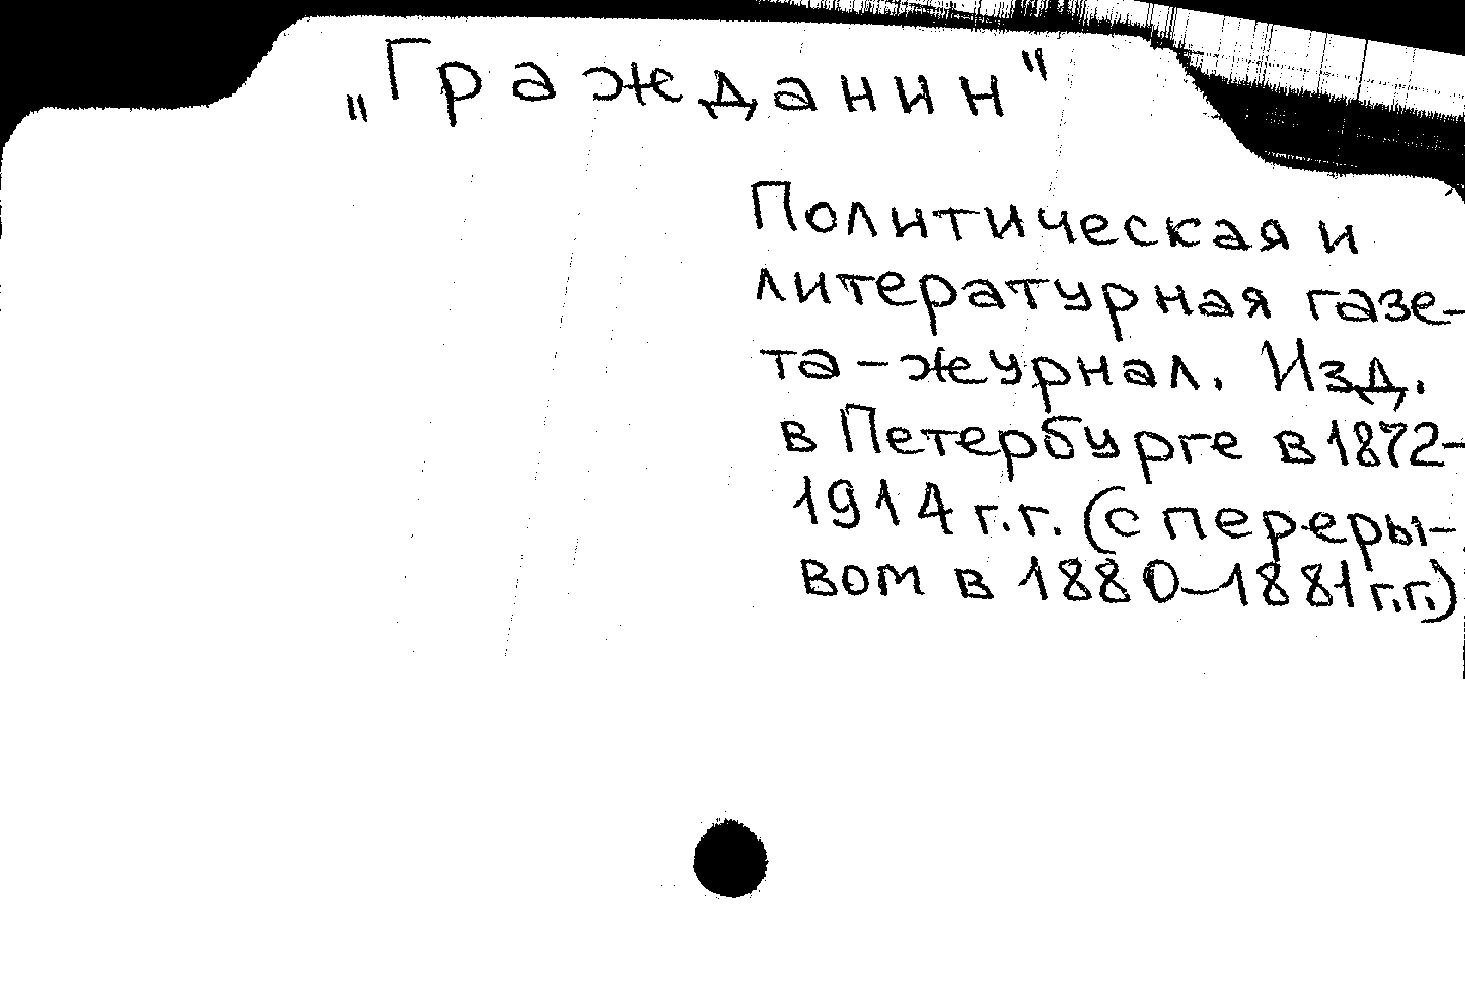 „Гражданин"
Политическая и
литературная газе-
та-журнал. Изд.
в Петербурге в 1872-
1914 г.г. (с переры-
вом в 1880-1881 г.г.)